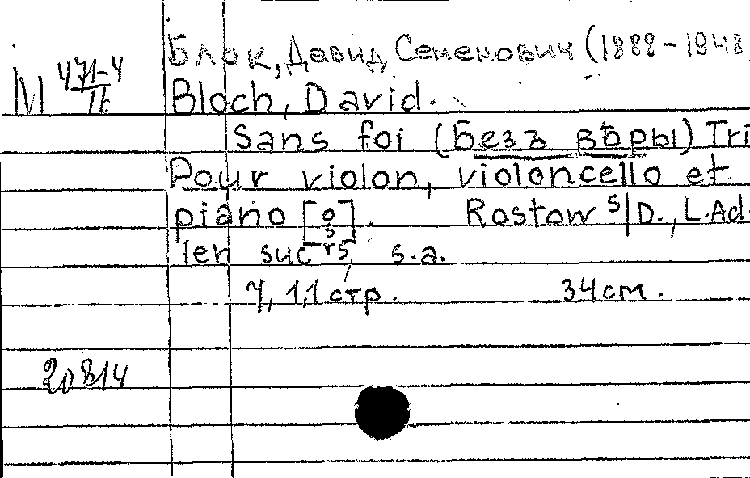 Блок, Давид Семенович (1888-1948
М 471-4/II
Bloch, David.
Sans foi (Безъ вѣры) Tri
Pour violon, violoncello et
piano [g]. Rostow s/D., L.Ad-
ler sucrs, s.a.
7, 1,1 стр. 34 см.
20814